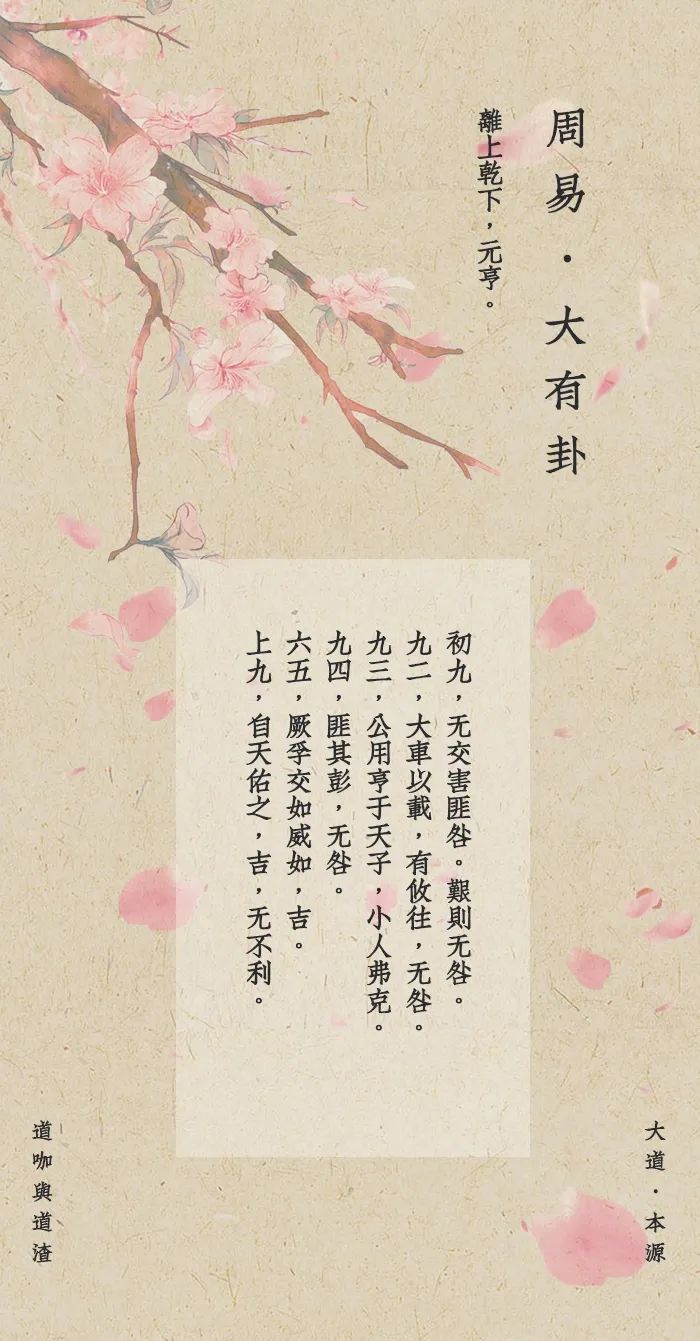 周易·大有卦
離上乾下，元亨。
初九，无交害匪咎。艱則无咎。
九二，大車以載，有攸往，无咎。
九三，公用亨于天子，小人弗克。
九四，匪其彭，无咎。
六五，厥孚交如威如，吉。
上九，自天佑之，吉，无不利。
大道·本源
道咖與道渣